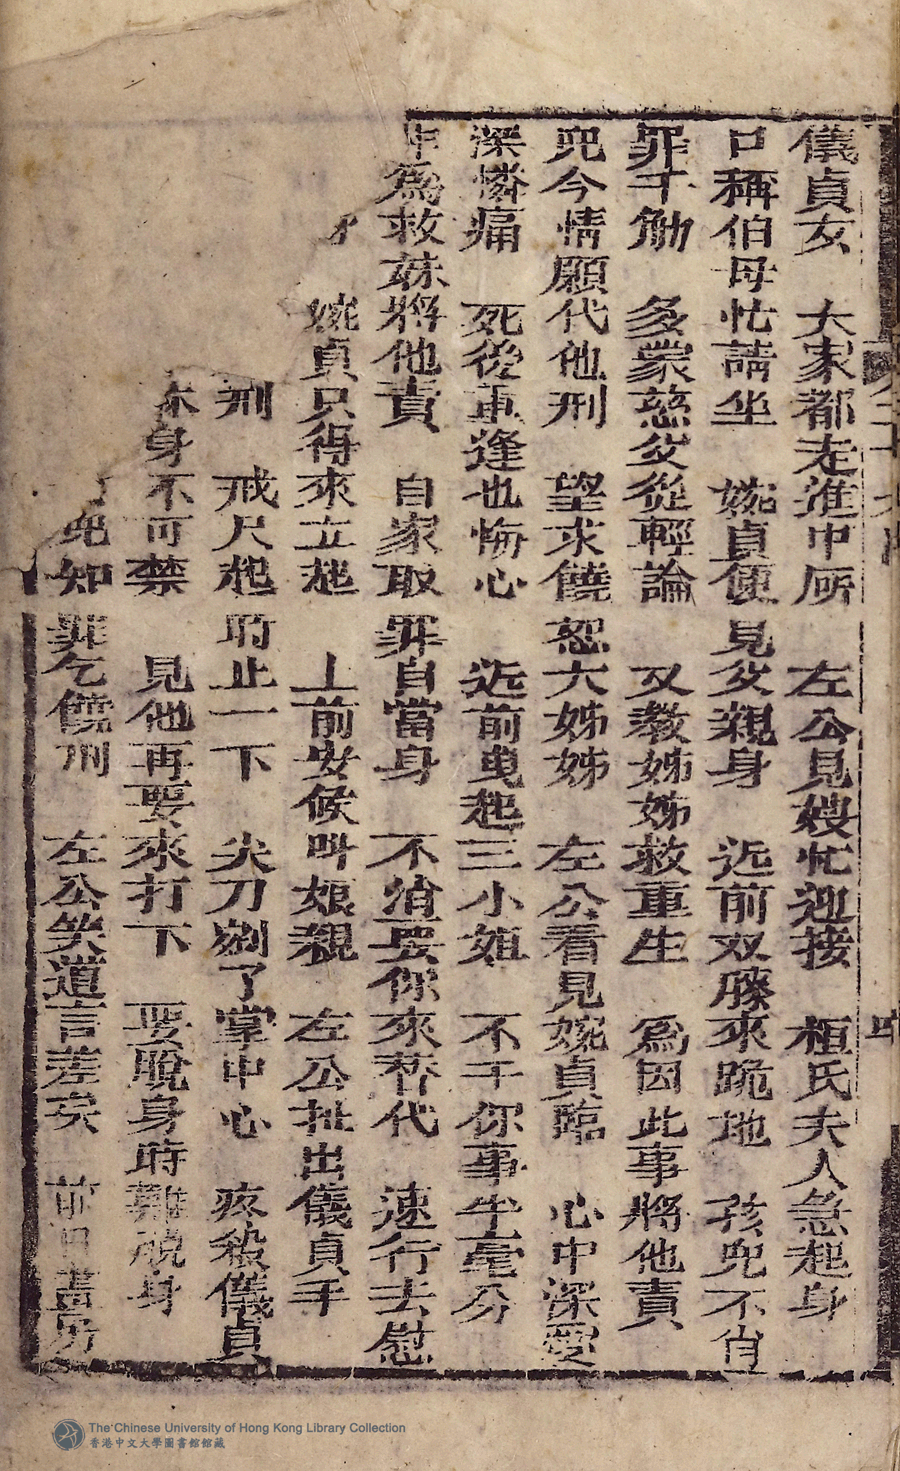 儀貞女　大家都走進中㕔　左公見嫂忙迎接　桓氏夫人急起身
口稱伯母忙請坐　婉貞便見父親身　近前双膝來跪地　孩兒不肖
罪千觔　多蒙慈父從輕論　又教姊姊救重生　為因此事將他責
兒今情願代他刑　望求饒恕六姊姊　左公看見婉貞臨　心中深愛
深憐痛　死後重逢也悔心　近前曳起三小姐　不干你事半毫分
為救妹將他責　自家取罪自當身　不消要你來替代　速行去慰
婉貞只得來立起　上前安候呌娘親　左公扯出儀貞手
刑　戒尺起時止一下　尖刀剜了掌中心　疼殺儀貞
身不可禁　見他再要來打下　要脫身時難脫身
兒知罪乞饒刑　左公笑道言差矣　前日書房
The Chinese University of Hong Kong Library Collection
香港中文大學圖書館館藏